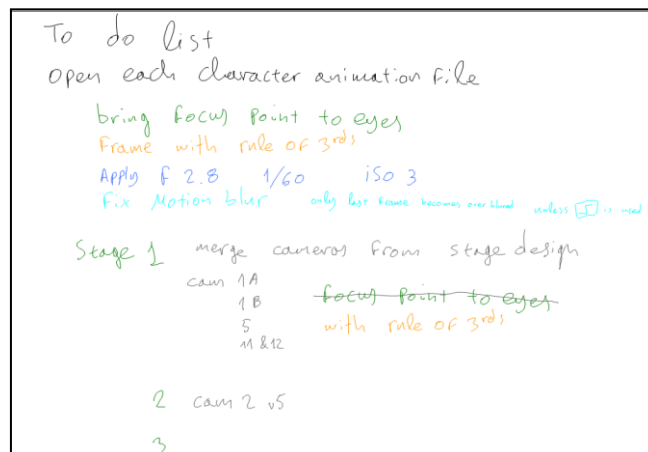 To do list
open each character animation file
bring focus point to eyes
Frame with rule of 3rds
Apply f 2.8 1/60 iso 3
Fix Motion blur only last frame becomes over blured unless is used
Stage 1 merge cameras from stage design
cam 1A
1B focus point to eyes
5 with rule of 3rds
11 &12
2 cam 2 v5
3